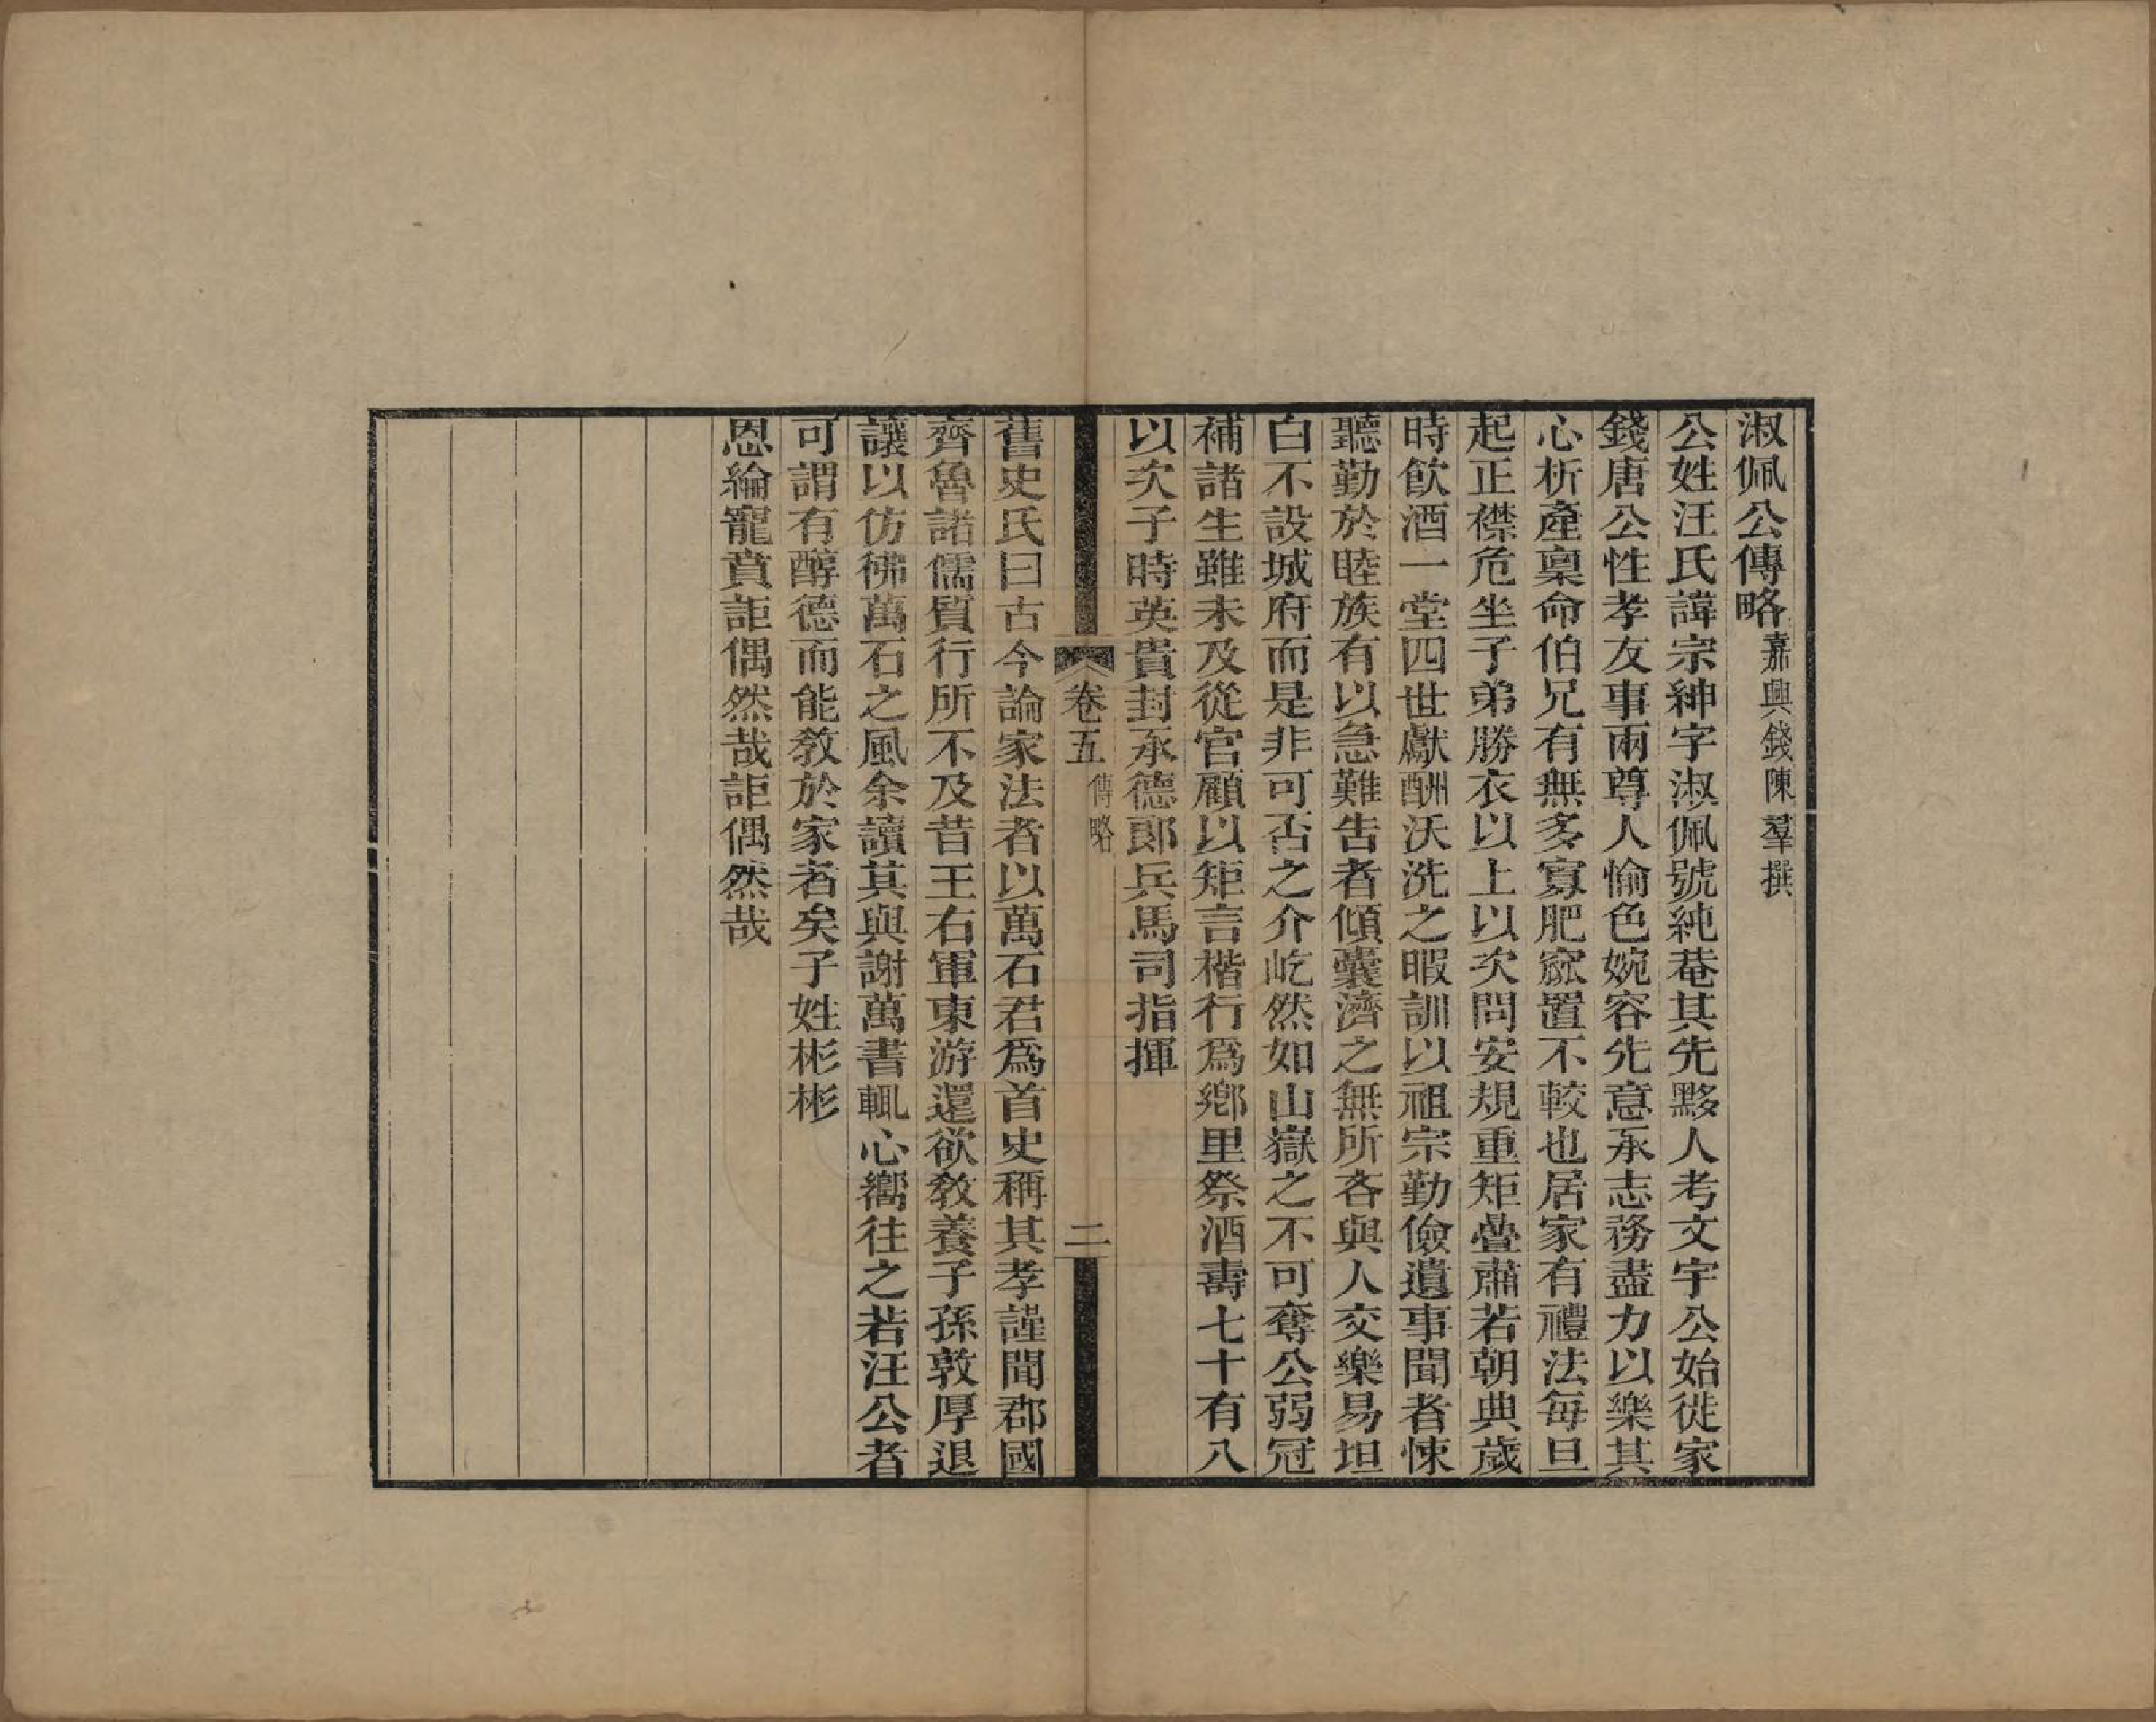 淑佩公傳略嘉興錢陳羣撰
公姓汪氏諱宗紳字淑佩號純菴其先黟人考文宇公始徙家
錢唐公性孝友事兩尊人愉色婉容先意承志務盡力以樂其
心析產稟命伯兄有無多寡肥窳置不較也居家有禮法每旦
起正襟危坐子弟勝衣以上以次問安規重矩疊肅若朝典歲
時飲酒一堂四世獻酬沃洗之暇訓以祖宗勤儉遺事聞者悚
聽勤於睦族有以急難告者傾囊濟之無所吝與人交樂易坦
白不設城府而是非可否之介屹然如山嶽之不可奪公弱冠
補諸生雖未及從官顧以矩言楷行爲鄉里祭酒壽七十有八
以次子時英貴封承德郎兵馬司指揮
卷五 傳略 二
舊史氏曰古今論家法者以萬石君爲首史稱其孝謹聞郡國
齊魯諸儒質行所不及昔王右軍東游還欲敎養子孫敦厚退
讓以仿彿萬石之風余讀其與謝萬書輒心嚮往之若汪公者
可謂有醇德而能敎於家者矣子姓彬彬
恩綸寵賁詎偶然哉詎偶然哉